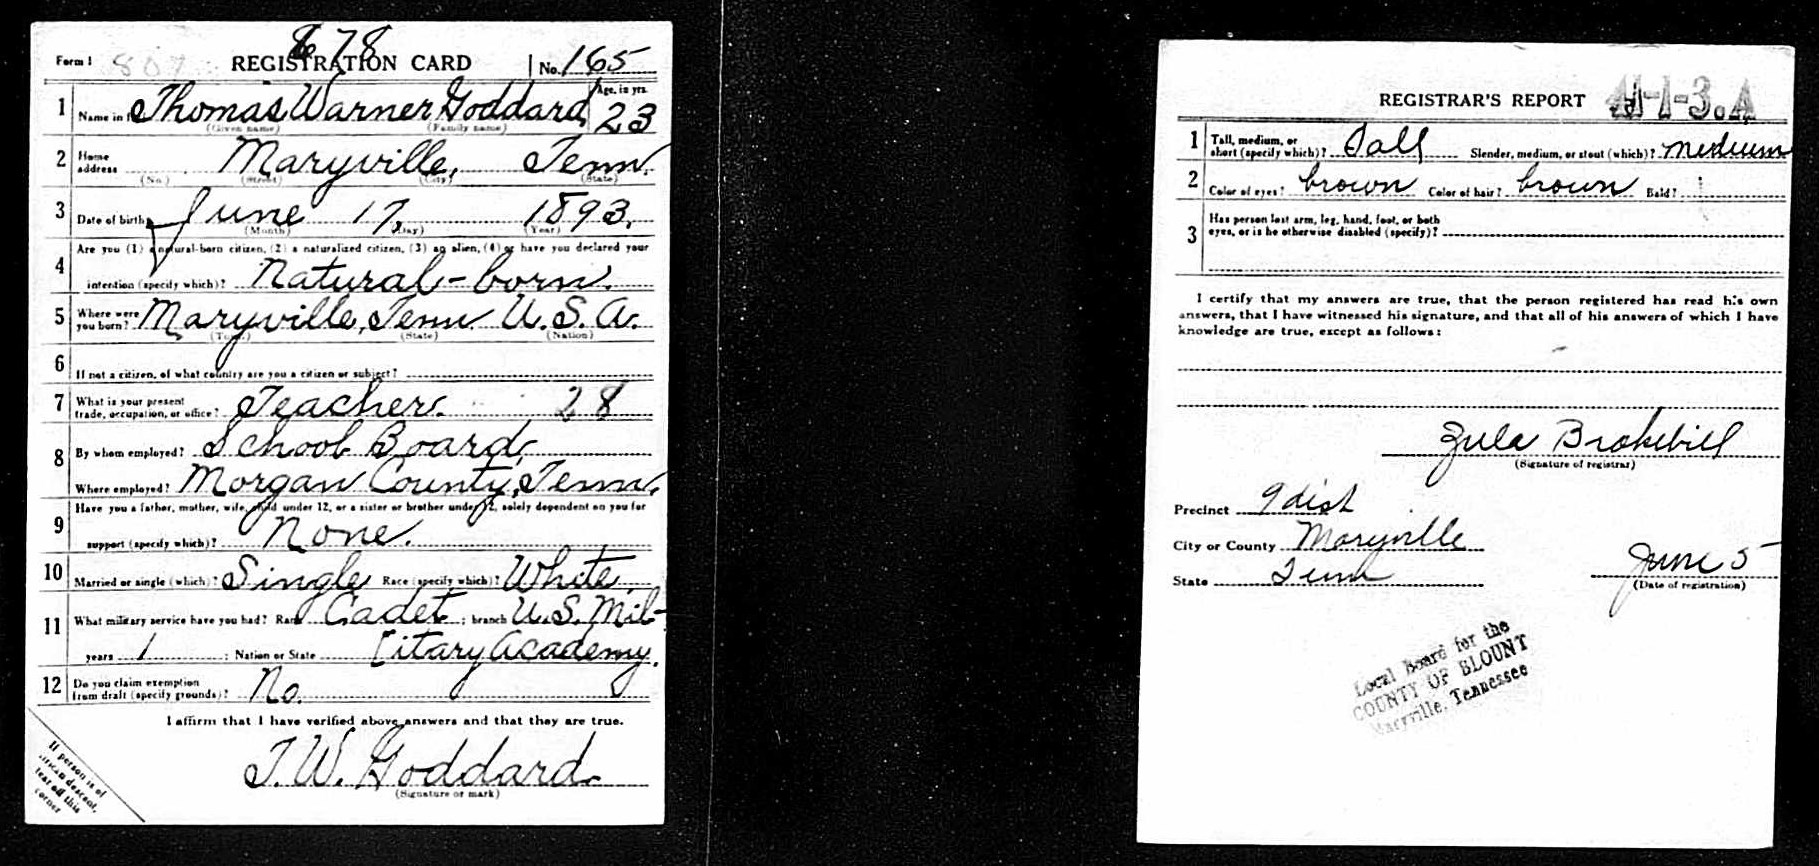 678
Form 1 807 REGISTRATION CARD No. 165
1 Name in Thomas Warner Goddard Age, in yrs. 23
(Given name) (Family name)
2 Home address Maryville, Tenn.
(No.) (Street) (City) (State)
3 Date of birth June 17, 1893.
(Month) (Day) (Year)
Are you (1) a natural-born citizen, (2) a naturalized citizen, (3) an alien, (4) or have you declared your
4 intention (specify which)? Natural-born.
5 Where were you born? Maryville, Tenn U. S. A.
(Town) (State) (Nation)
6 If not a citizen, of what country are you a citizen or subject?
7 What is your present trade, occupation, or office? Teacher. 28
8 By whom employed? School Board,
Where employed? Morgan County, Tenn.
9 Have you a father, mother, wife, child under 12, or a sister or brother under 12, solely dependent on you for
support (specify which)? None.
10 Married or single (which)? Single Race (specify which)? White
11 What military service have you had? Rank Cadet ; branch U. S. Mil-
years 1 ; Nation or State itary Academy.
12 Do you claim exemption from draft (specify grounds)? No.
I affirm that I have verified above answers and that they are true.
T. W. Goddard.
(Signature or mark)
If person is of
African descent,
tear off this
corner
REGISTRAR'S REPORT 41-1-3. A
1 Tall, medium, or short (specify which)? Tall Slender, medium, or stout (which)? medium
2 Color of eyes? brown Color of hair? brown Bald?
3 Has person lost arm, leg, hand, foot, or both
eyes, or is he otherwise disabled (specify)?
I certify that my answers are true, that the person registered has read his own
answers, that I have witnessed his signature, and that all of his answers of which I have
knowledge are true, except as follows:
Zula Brakebill
(Signature of registrar)
Precinct 9 dist
City or County Maryville
State Tenn
June 5
(Date of registration)
Local Board for the
COUNTY OF BLOUNT
Maryville, Tennessee